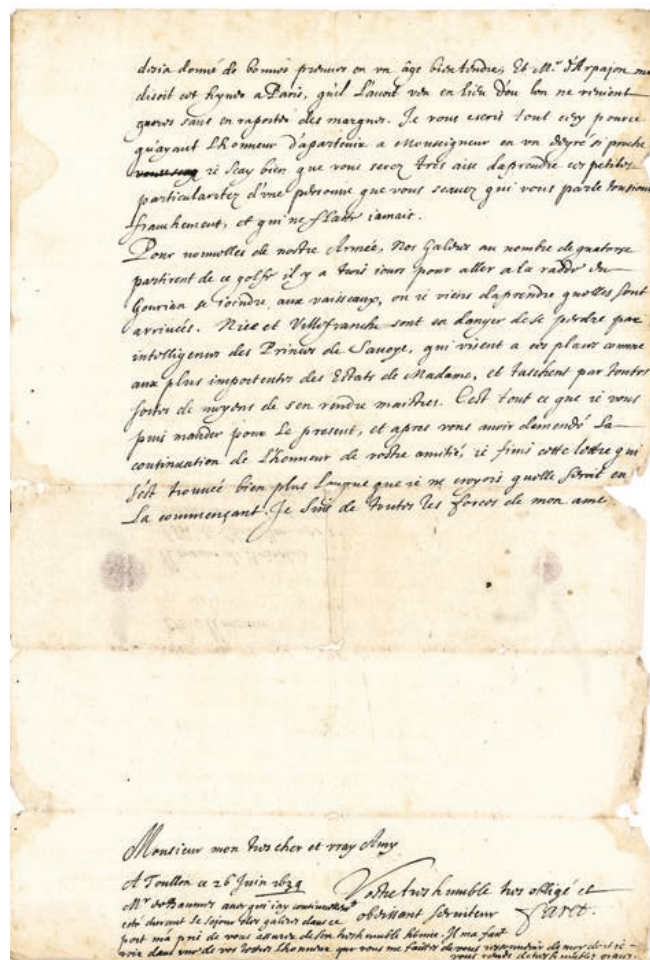 desia donné de bonnes preuves en vn âge bien tendre; Et Mr. d'Arpajon me
disoit cet hyuer a Paris, quil l'auoit veu en lieu dou lon ne reuient
gueres sans en raporter des marques. Je vous escris tout cecy pource
qu'ayant L'honneur d'apartenir a Monseigneur en vn degré si proche
ie scay bien que vous serez tres aise daprendre ces petites
particularitez d'vne personne que vous scauez qui vous parle tousiours
franchement, et qui ne flatte iamais.
Pour nouuelles de nostre Armée, Nos Galeres au nombre de quatorse
partirent de ce golfe il y a trois iours pour aller a la radde du
Gourian se ioindre aux vaisseaux, ou ie viens daprendre quelles sont
arriuées. Nice et Villefranche sont en danger de se perdre par
intelligences des Princes de Sauoye, qui visent a ces places comme
aux plus importantes des Estats de Madame, et taschent par toutes
sortes de moyens de sen rendre maistres. C'est tout ce que ie vous
puis mander pour Le present, et apres vous auoir demandé La
continuation de L'honneur de vostre amitié, ie finis cette lettre qui
s'est trouuée bien plus Longue que ie ne croyois quelle seroit en
La commençant. Je suis de toutes les forces de mon ame
Monsieur mon tres cher et vray Amy
A Toullon ce 26 Juin 1639
Vostre tres humble tres obligé et
obeissant seruiteur Faret.
Mr. de auec qui iay
esté durant le seiour des galeres dans ce
port ma prié de vous assurer de son tres humble seruice. Il ma fait
voir dans vne de vos lettres L'honneur que vous me faittes de vous ressouuenir de moy dont ie
vous rends tres humbles graces.